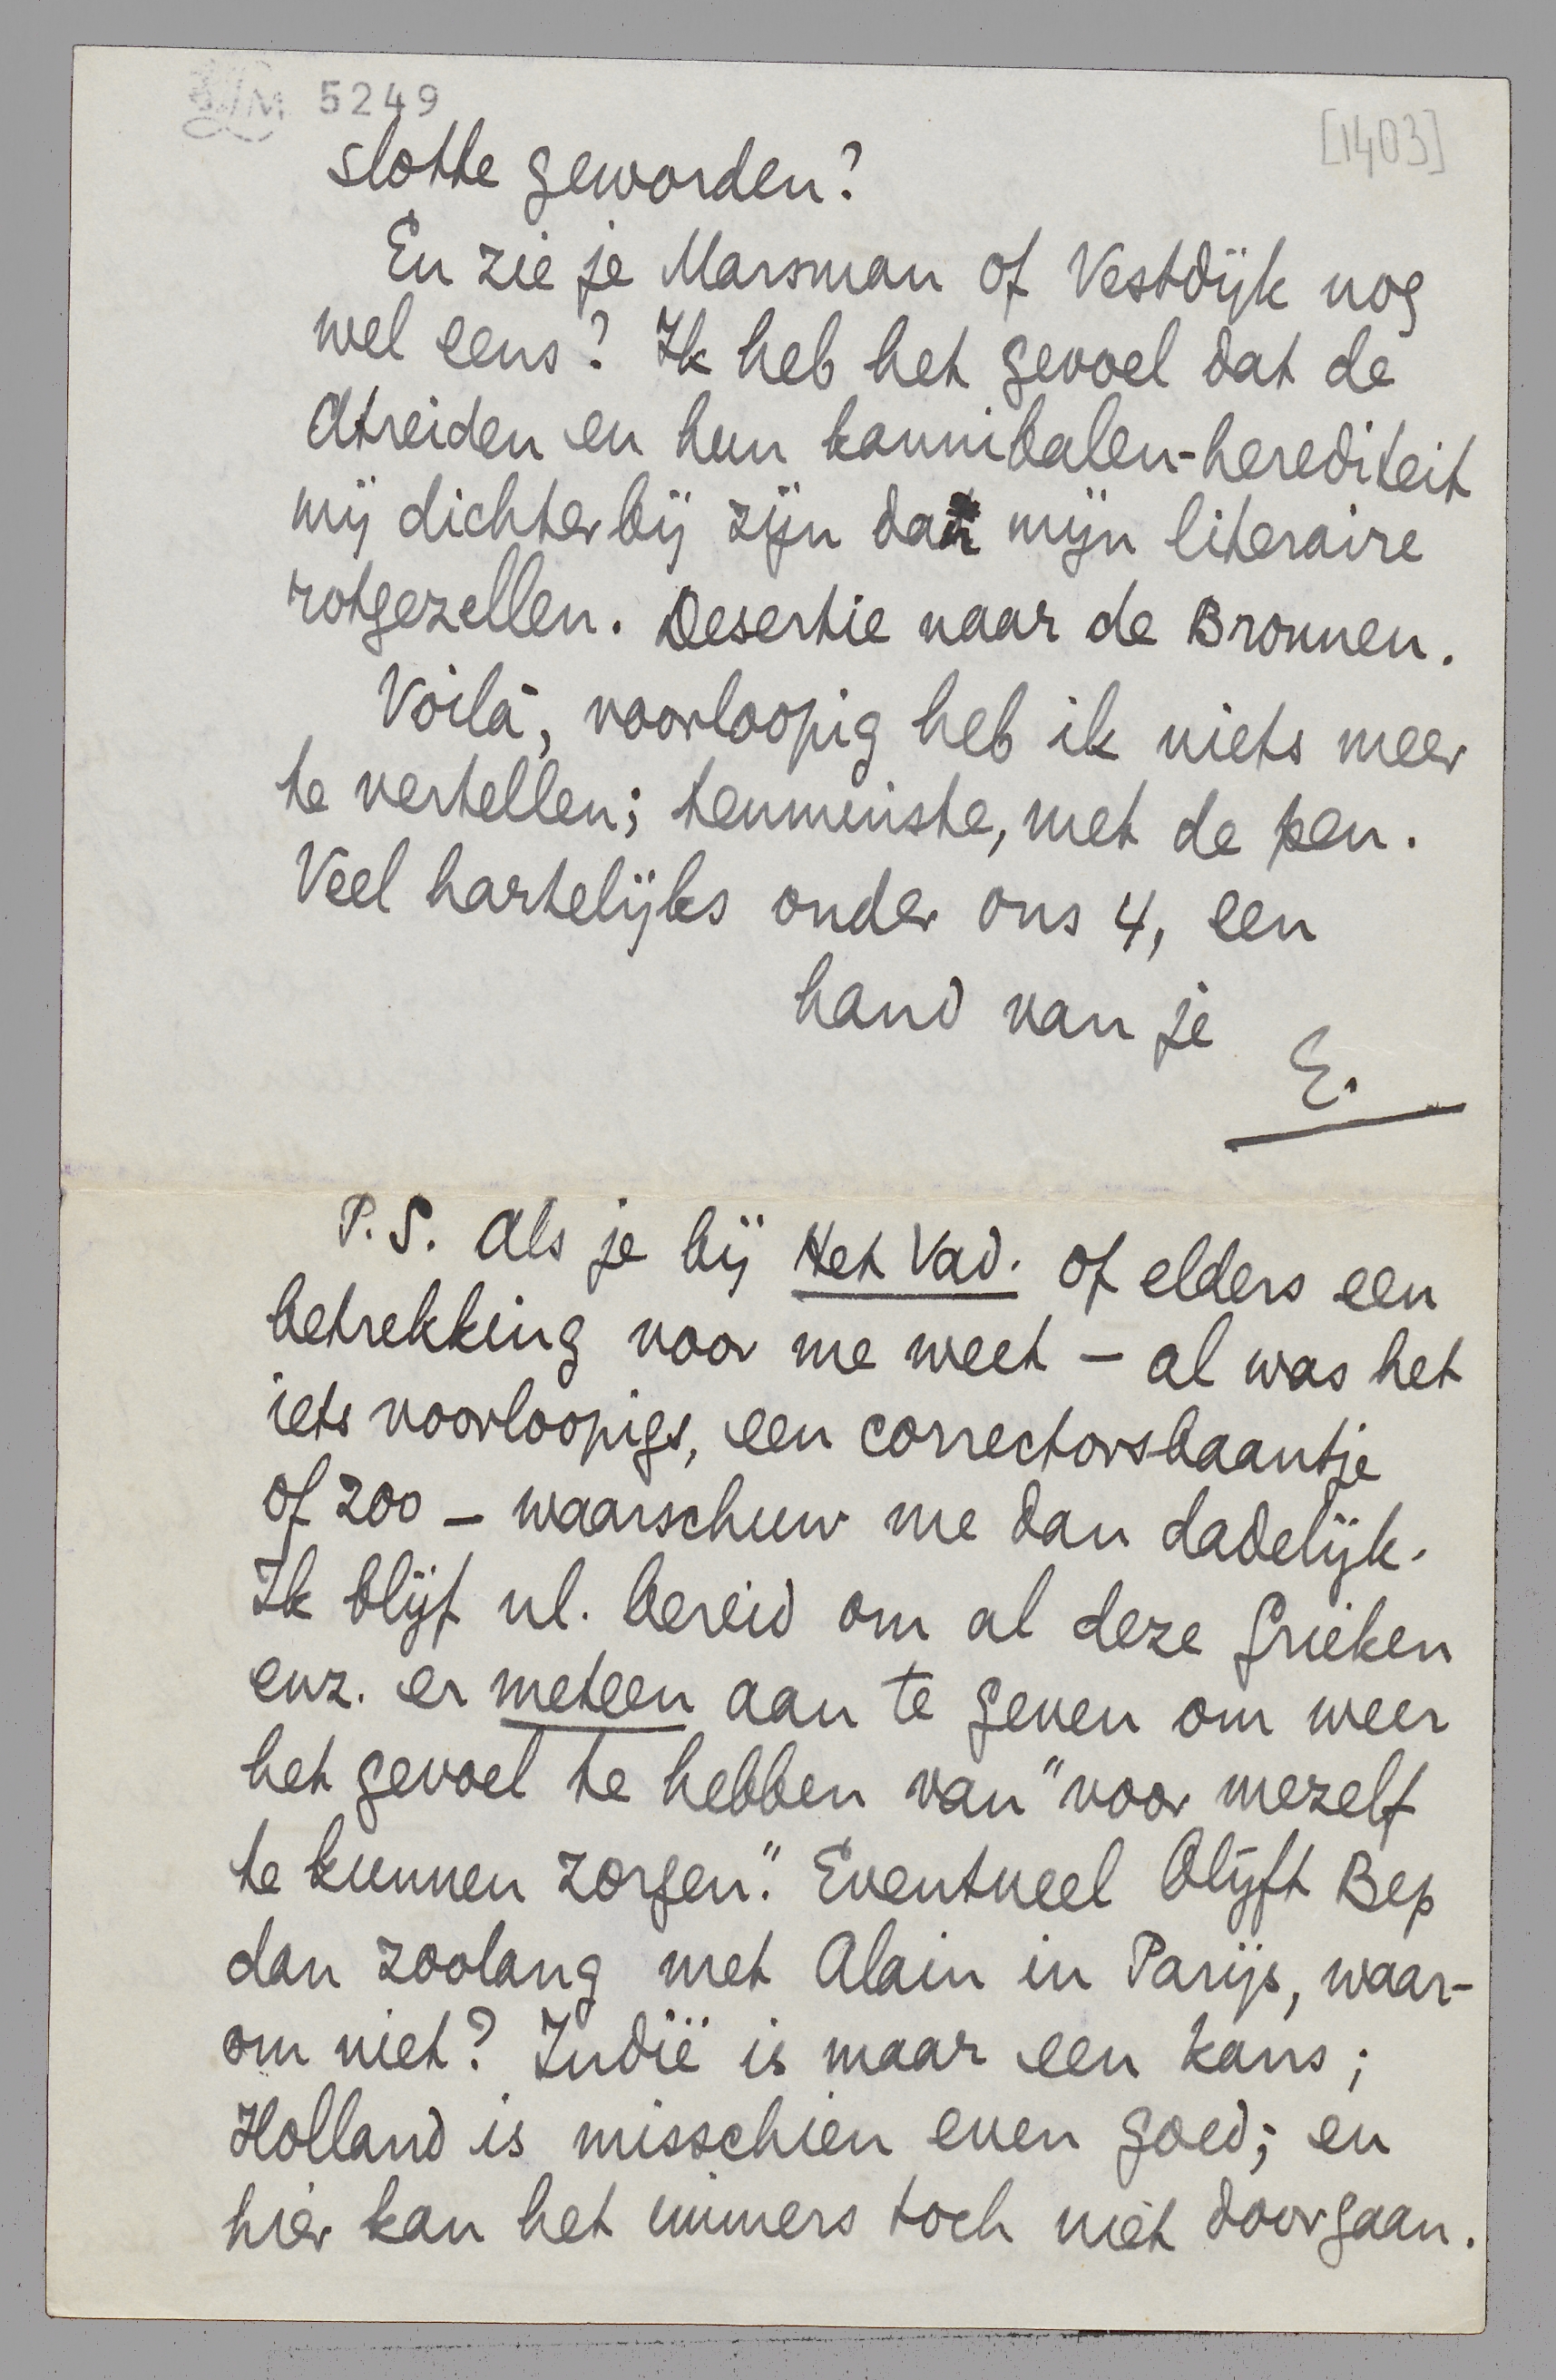 LM 5249
[1403]
slotte geworden?
En zie je Marsman of Vestdijk nog
wel eens? Ik heb het gevoel dat de
Atreiden en hun kannibalen-herediteit
mij dichterbij zijn dan mijn literaire
rotgezellen. Desertie naar de Bronnen.
Voilà, voorloopig heb ik niets meer
te vertellen; tenminste, met de pen.
Veel hartelijks onder ons 4, een
hand van je
E.
P.S. Als je bij Het Vad. of elders een
betrekking voor me weet – al was het
iets voorloopigs, een correctorsbaantje
of zoo – waarschuw me dan dadelijk.
Ik blijf nl. bereid om al deze Grieken
enz. er meteen aan te geven om weer
het gevoel te hebben van "voor mezelf
te kunnen zorgen." Eventueel blijft Bep
dan zoolang met Alain in Parijs, waar-
om niet? Indië is maar een kans;
Holland is misschien even goed; en
hier kan het immers toch niet doorgaan.